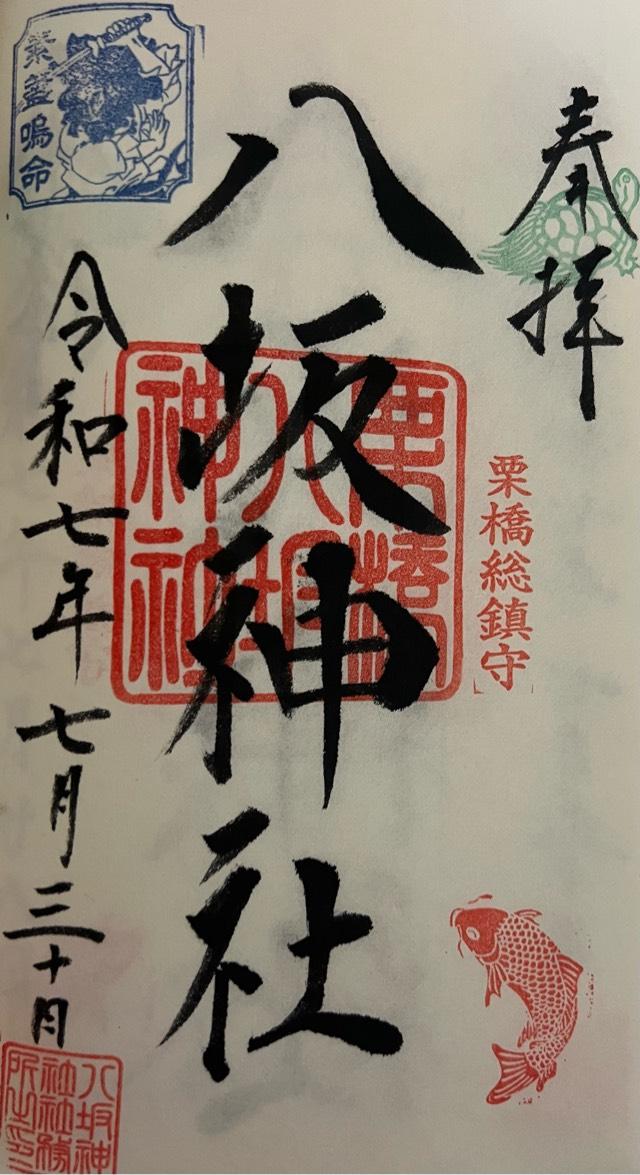 奉拝
栗橋総鎮守
八坂神社
栗橋
八坂
神社
素盞嗚命
令和七年七月三十日
八坂神
社社務
所之印